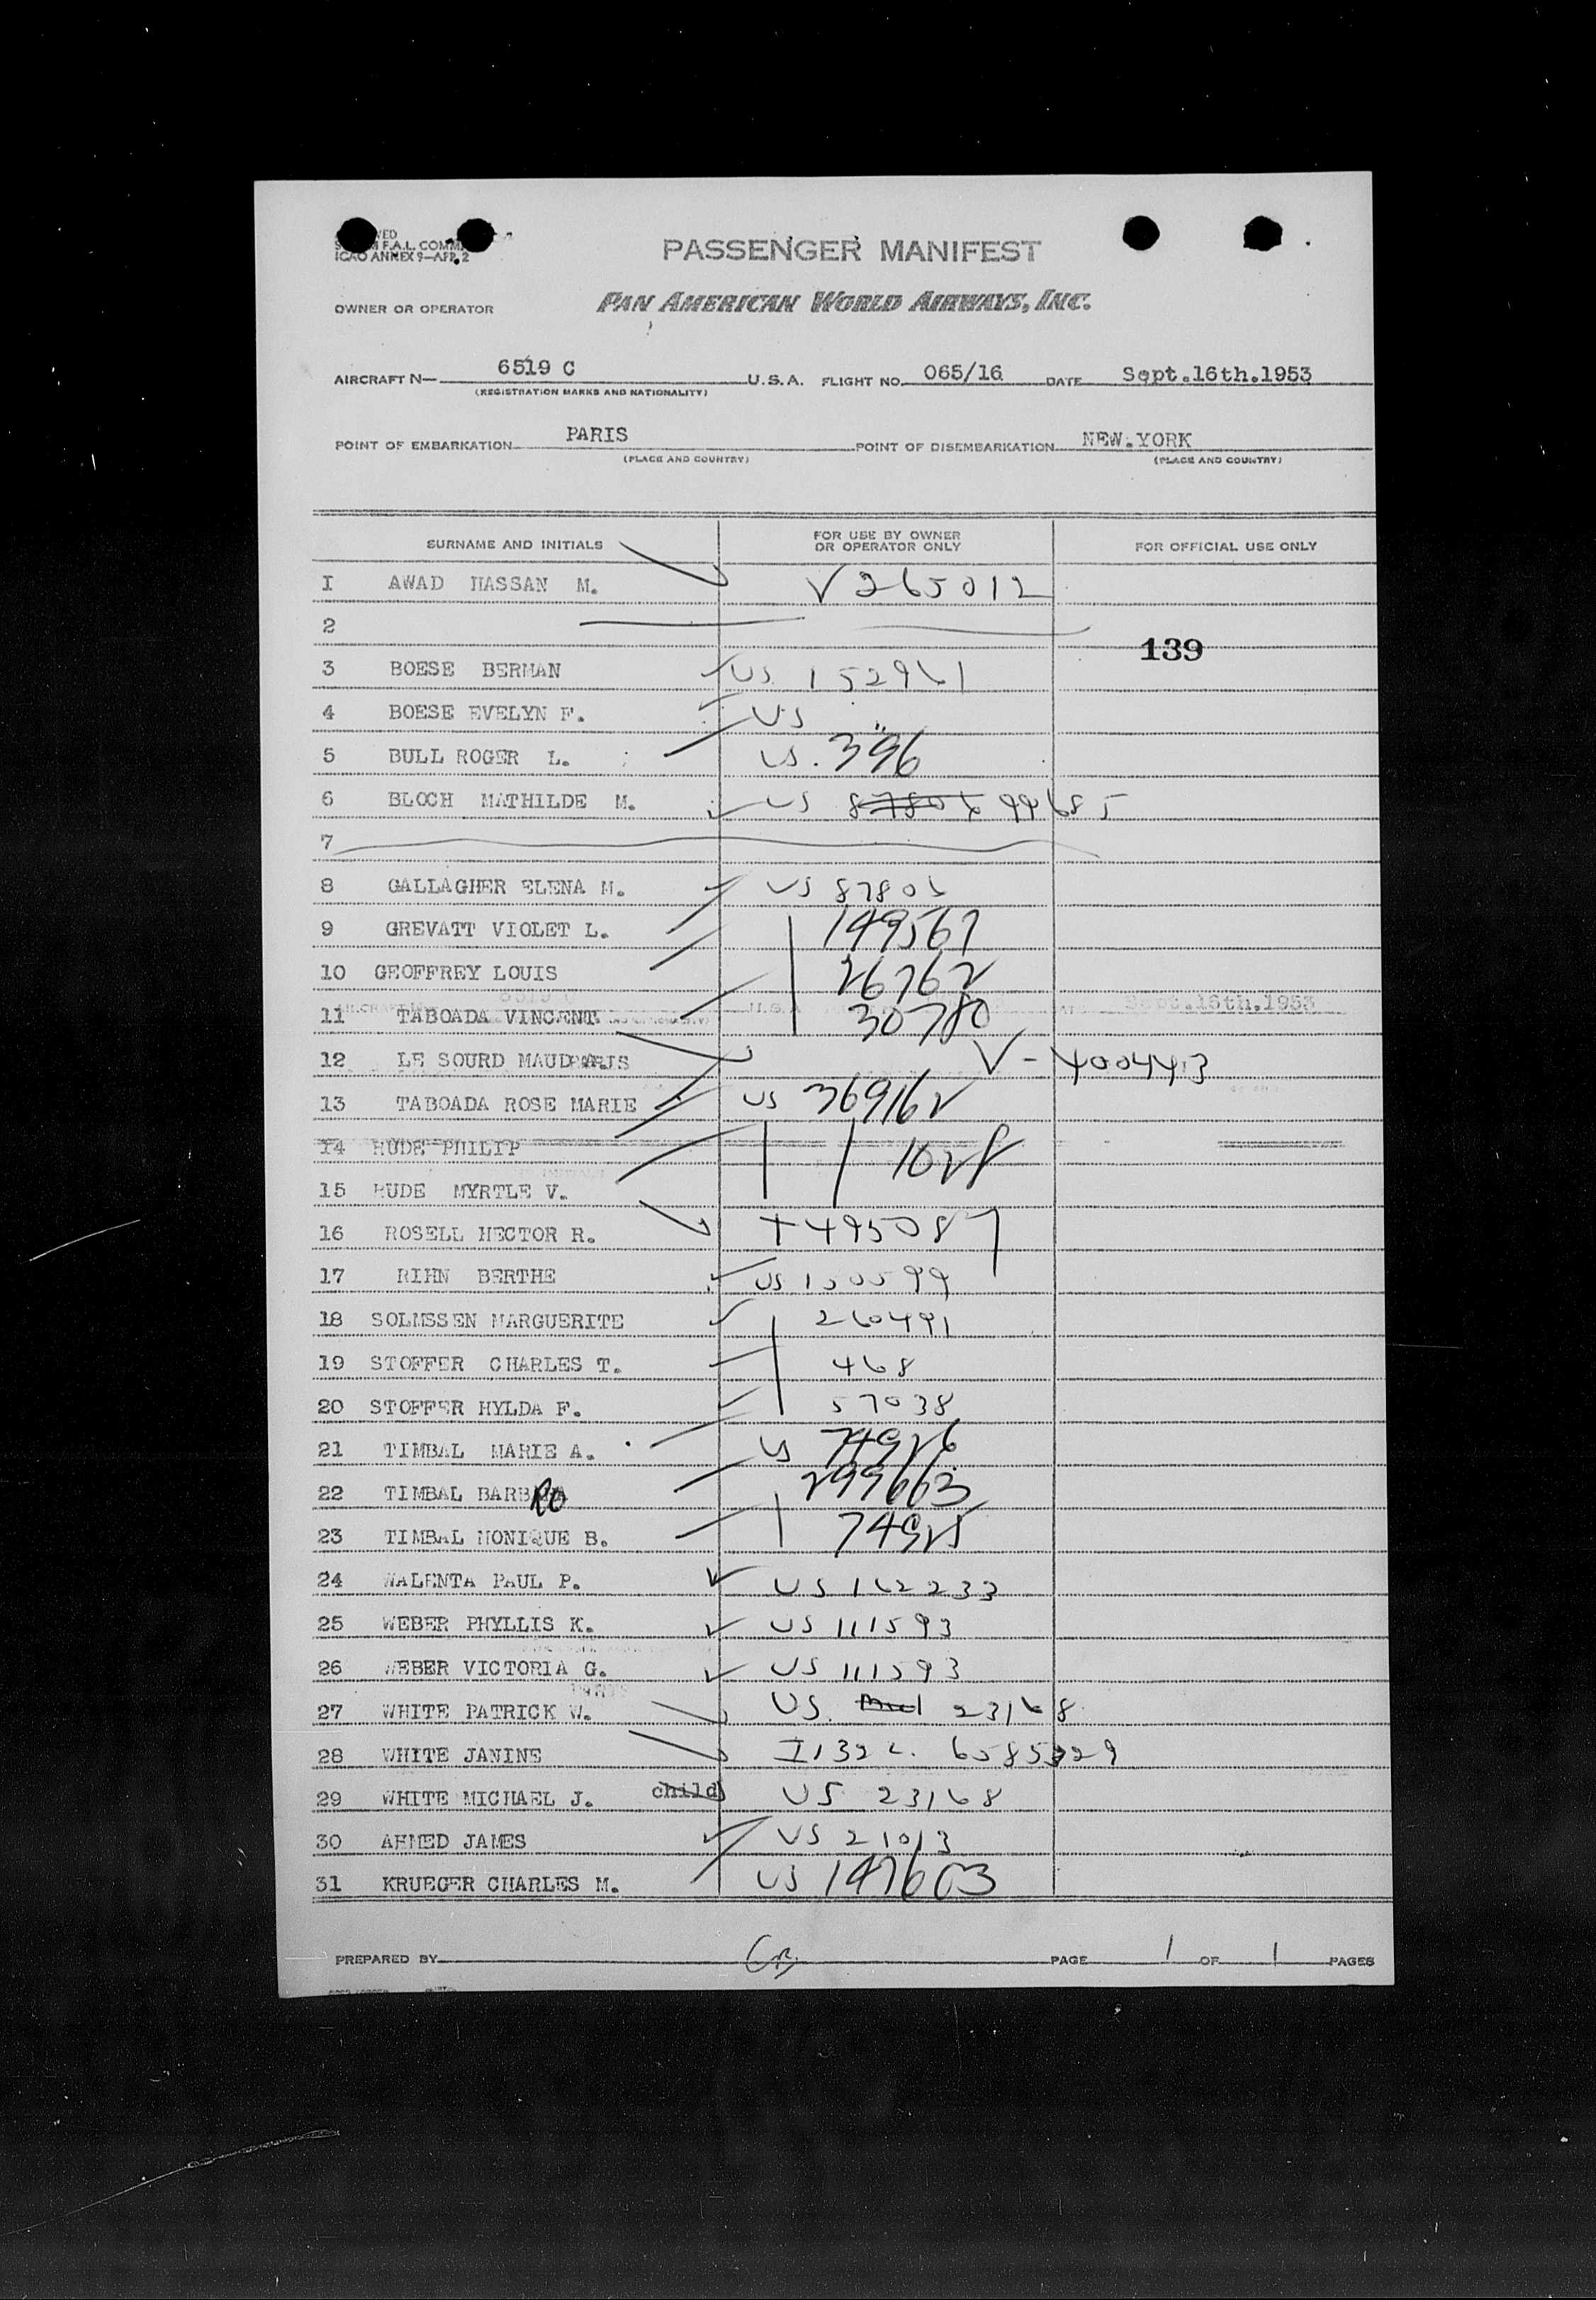 F.A.L. COMM.
ICAO ANNEX 9—APP. 2
PASSENGER MANIFEST
OWNER OR OPERATOR PAN AMERICAN WORLD AIRWAYS, INC.
AIRCRAFT N— 6519 C U.S.A. FLIGHT NO. 065/16 DATE Sept.16th.1953
(REGISTRATION MARKS AND NATIONALITY)
POINT OF EMBARKATION PARIS POINT OF DISEMBARKATION NEW.YORK
(PLACE AND COUNTRY) (PLACE AND COUNTRY)
SURNAME AND INITIALS FOR USE BY OWNER OR OPERATOR ONLY FOR OFFICIAL USE ONLY
I AWAD HASSAN M. V 265012
2
139
3 BOESE BERMAN US 152961
4 BOESE EVELYN F. US "
5 BULL ROGER L. US. 396
6 BLOCH MATHILDE M. US 87806 99685
7
8 GALLAGHER ELENA M. US 87806
9 GREVATT VIOLET L. 149567
10 GEOFFREY LOUIS 26762
11 TABOADA VINCENT 30780
12 LE SOURD MAUD A. V-4004413
13 TABOADA ROSE MARIE US 369162
14 RUDE PHILIP 1028
15 RUDE MYRTLE V.
16 ROSELL HECTOR R. T495087
17 RIHN BERTHE US 150599
18 SOLMSSEN MARGUERITE 260491
19 STOFFER CHARLES T. 468
20 STOFFER HYLDA F. 57038
21 TIMBAL MARIE A. US 74926
22 TIMBAL BARBARA 299663
23 TIMBAL MONIQUE B. 74925
24 WALENTA PAUL P. US 162233
25 WEBER PHYLLIS K. US 111593
26 WEBER VICTORIA G. US 111593
27 WHITE PATRICK W. US. 23168
28 WHITE JANINE I132 6585329
29 WHITE MICHAEL J. child US 23168
30 AHMED JAMES US 21013
31 KRUEGER CHARLES M. US 147603
PREPARED BY PAGE 1 OF 1 PAGES